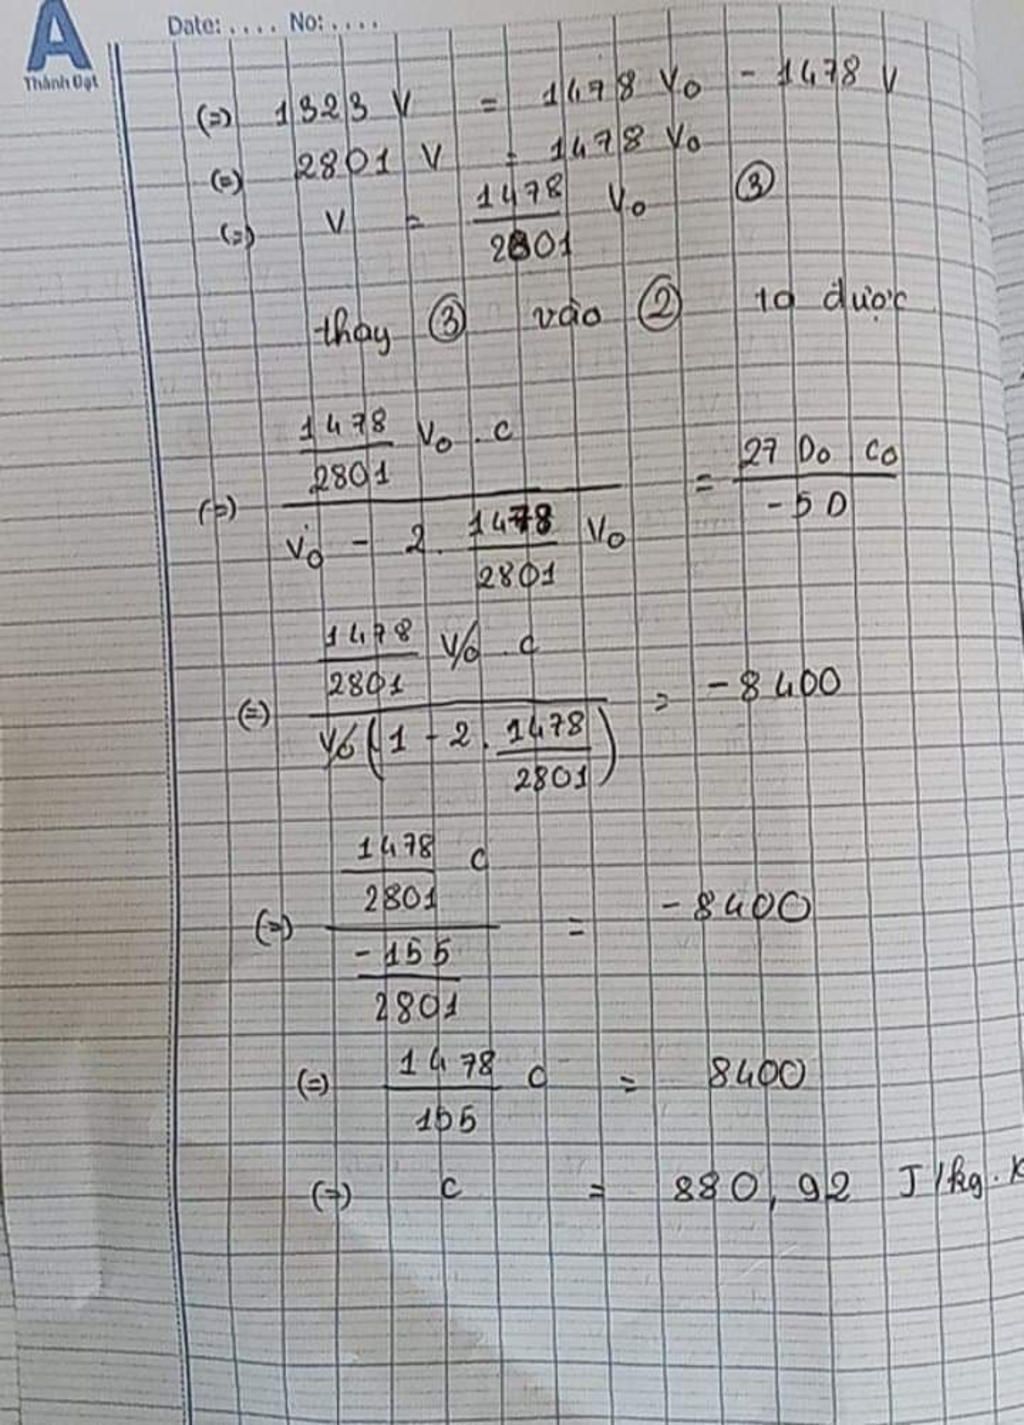 Date: .... No: ....
A
Thành Đạt
(=) 1323 V = 1478 V₀ - 1478 V
(=) 2801 V = 1478 V₀
(=) V = 1478/2801 V₀ ③
thay ③ vào ② ta được
(=) (1478/2801 V₀ . c)/(V₀ - 2 . 1478/2801 V₀) = (27 D₀ C₀)/(-5 D)
(=) (1478/2801 V₀ . c)/(V₀ (1 - 2 . 1478/2801)) = -8400
(=) (1478/2801 c)/(-155/2801) = -8400
(=) 1478/155 c = 8400
(=) c = 880,92 J/kg.K